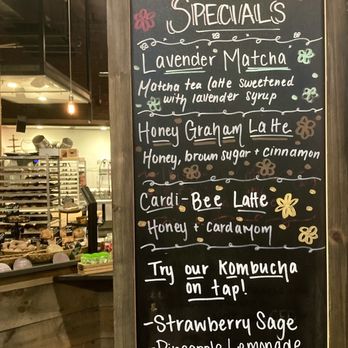 SPECIALS
LAVENDER MATCHA
MATCHA TEA LATTE SWEETENED
WITH LAVENDER SYRUP
HONEY GRAHAM LATTE
HONEY, BROWN SUGAR + CINNAMON
CARDI-BEE LATTE
HONEY + CARDAMOM
TRY OUR KOMBUCHA
ON TAP!
-STRAWBERRY SAGE
-PINEAPPLE LEMONADE